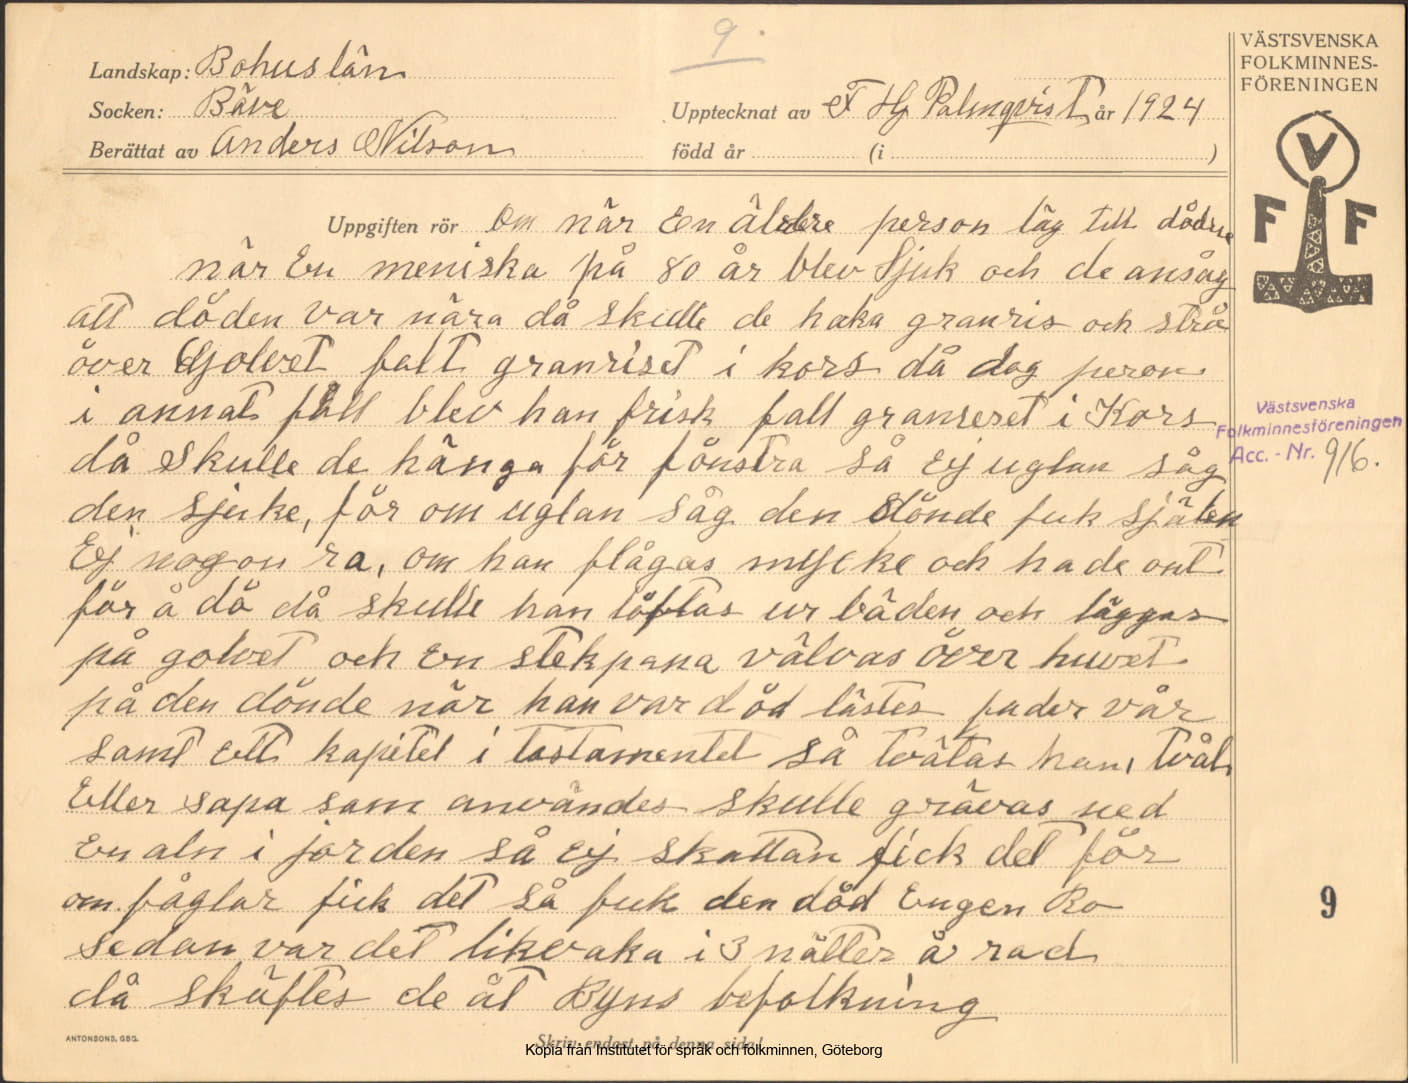 9.
VÄSTSVENSKA
FOLKMINNES-
FÖRENINGEN
Landskap: Bohuslän
Socken: Bäve
Upptecknat av F Hj Palmqvist år 1924
Berättat av Anders Nilson
född år (i )
V
F F
Uppgiften rör Om när En äldere person låg till döds
när En meniska på 80 år blev Sjuk och de ansåg
att döden var nära då skulle de haka granris och strå
över Golvet falt granriset i kors då dog peron
i annat fall blev han frisk fall granseret i Kors
då skulle de hänga för fönstra så Ej uglan såg
den sjuke, för om uglan såg den dönde fuk själen
Ej nogon ra, om han plågas mycke och hade ont
för å dö då skulle han löftas ur bäden och läggas
på golvet och En stekpana välvas över huvet
på den dönde när han var död lästes fader vår
samt Ett kapitel i testamentet så tvätas han, tvål
Eller sapa som användes skulle grävas ned
En aln i jorden så Ej skattan fick det för
om fåglar fick det så fuk den död Engen Ro
sedan var det likvaka i 3 nätter å rad
då skäftes de åt Byns befolkning
Västsvenska
Folkminnesföreningen
Acc. - Nr. 916.
9
ANTONSONS, GBG.
Skriv endast på denna sida!
Kopia från Institutet för språk och folkminnen, Göteborg